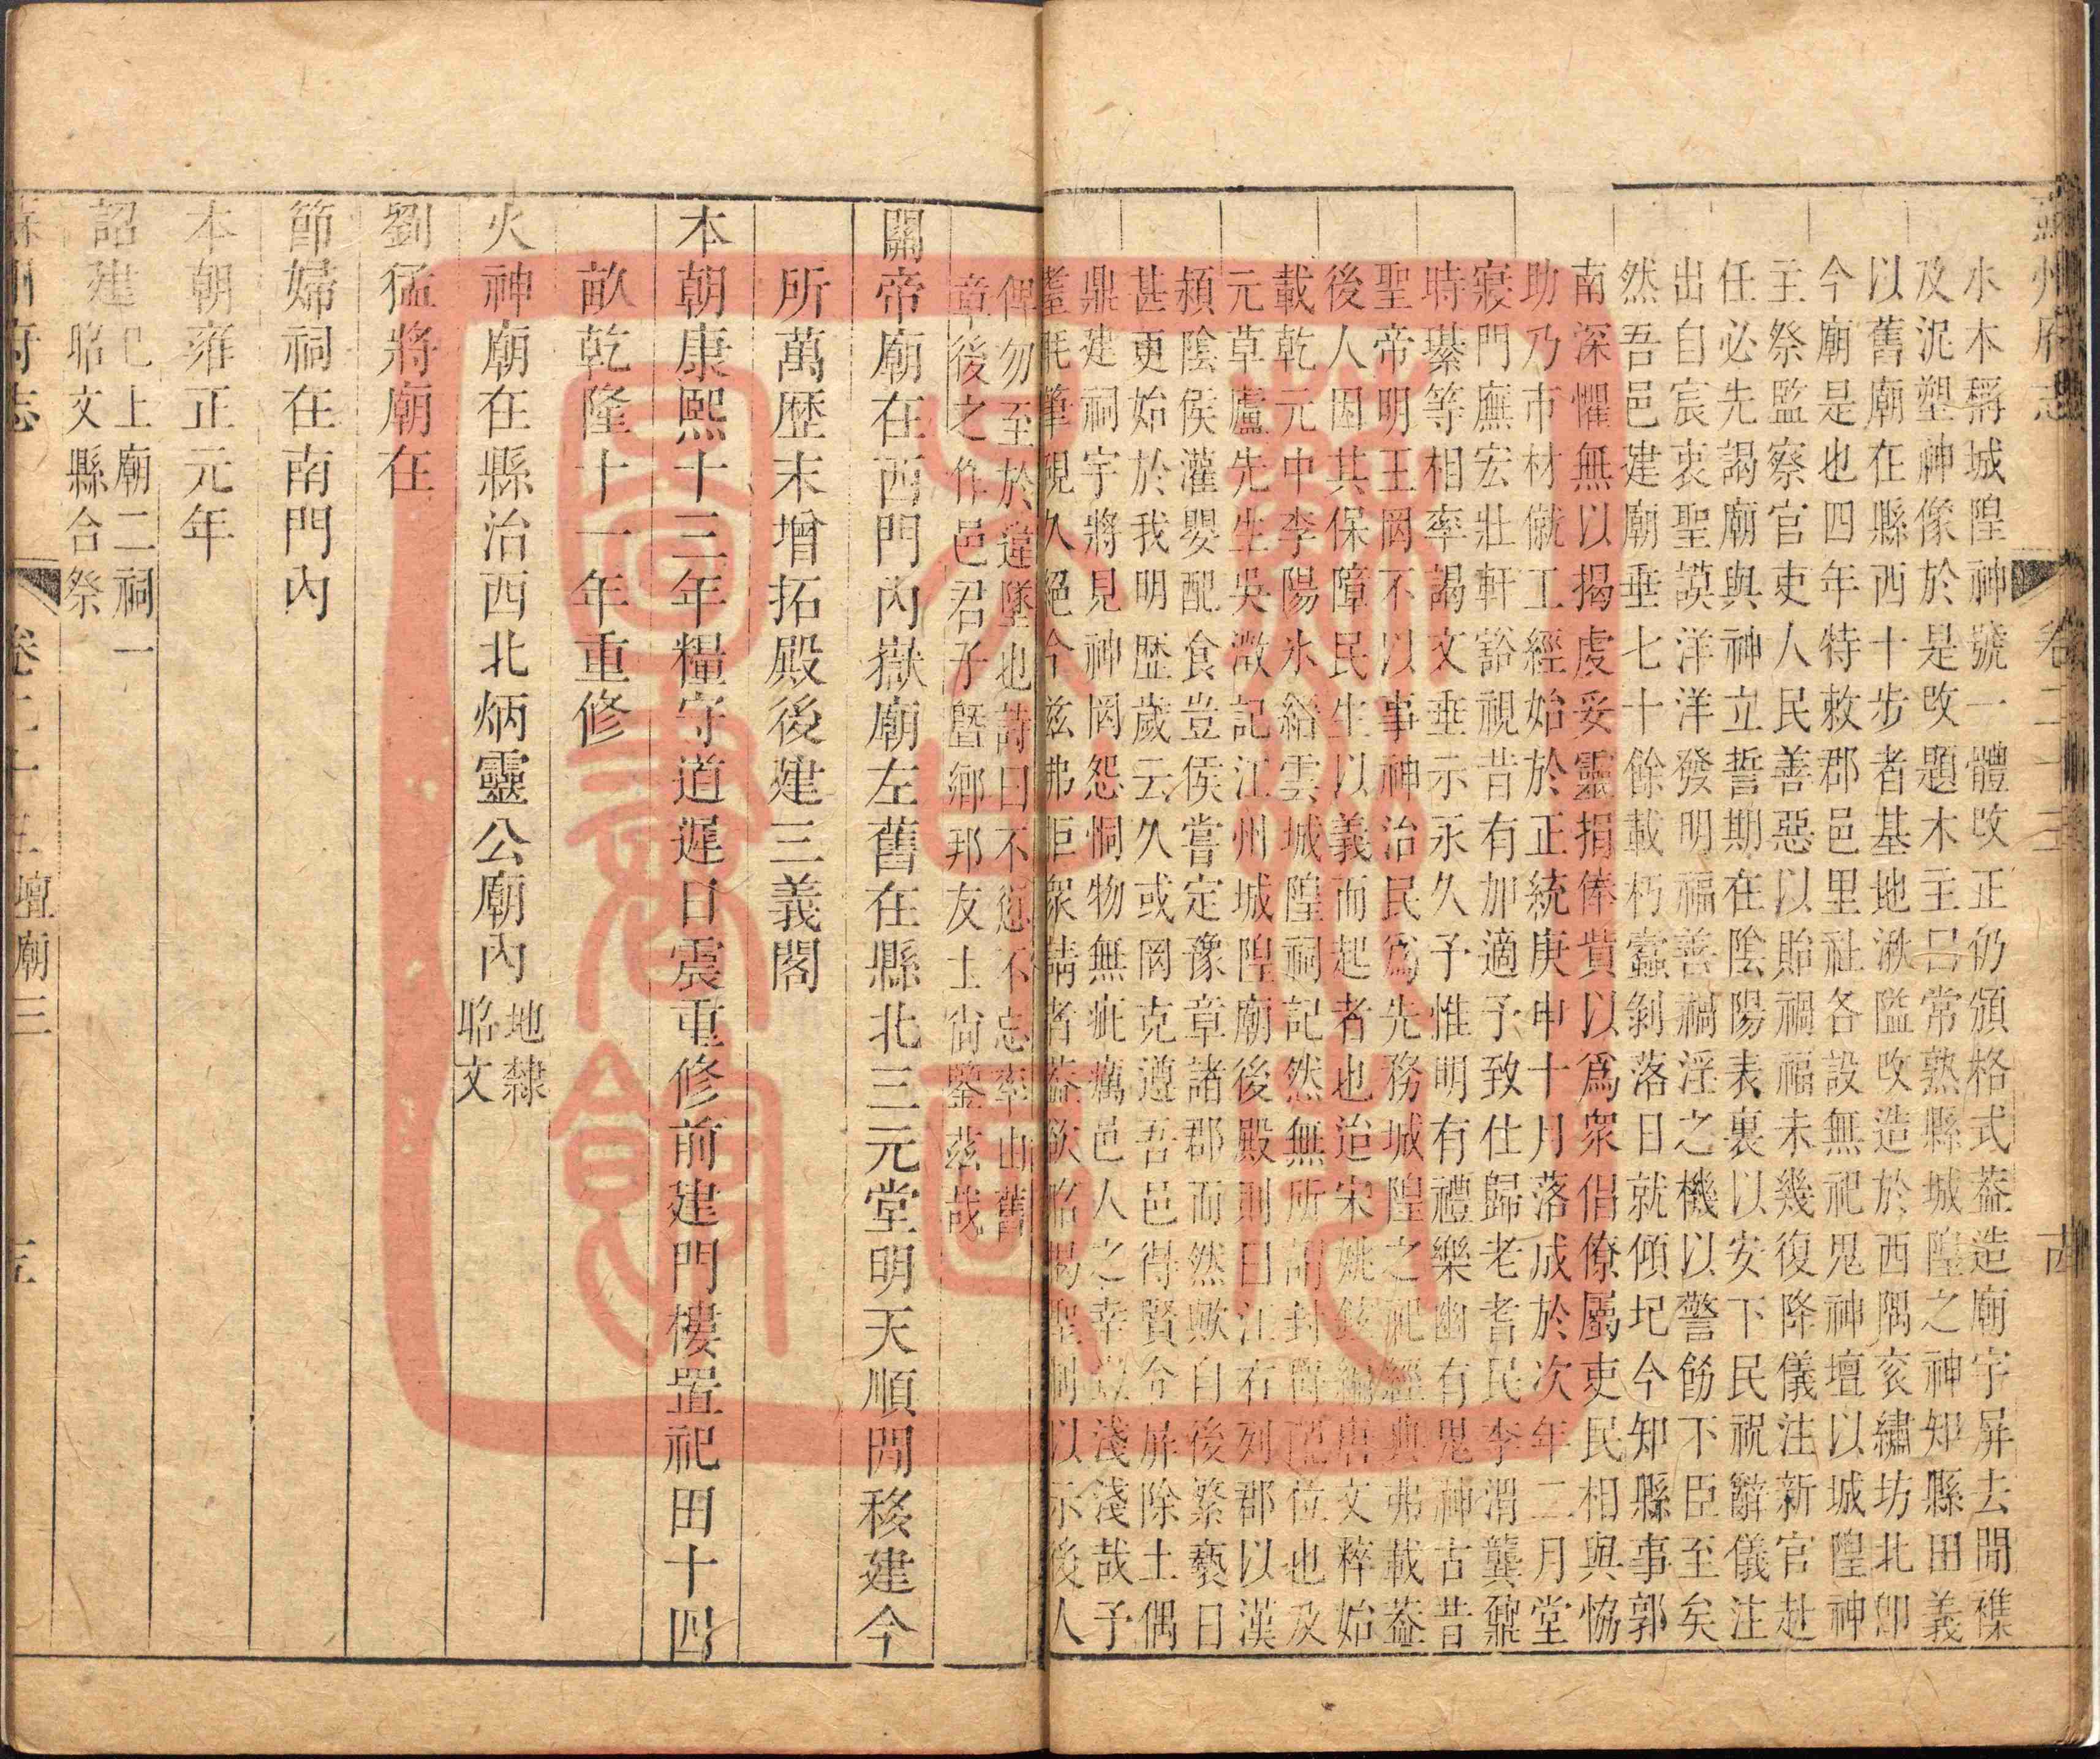 州府志 卷二十三
水木稱城隍神號一體改正仍頒格式葢造廟宇屏去閒襍
及泥塑神像於是改題木主曰常熟縣城隍之神知縣田義
以舊廟在縣西十步者基地湫隘改造於西隅亥繡坊北卽
今廟是也四年特敕郡邑里社各設無祀鬼神壇以城隍神
主祭監察官吏人民善惡以貽禍福未幾復降儀注新官赴
任必先謁廟與神立誓期在陰陽表裏以安下民祝辭儀注
出自宸衷聖謨洋洋發明福善禍淫之機以警飭不臣至矣
然吾邑建廟垂七十餘載朽蠹剝落日就傾圮今知縣事郭
南深懼無以揭虔妥靈捐俸貲以爲眾倡僚屬吏民相與恊
助乃市材僦工經始於正統庚申十月落成於次年二月堂
寢門廡宏壯軒豁視昔有加適予致仕歸老耆民李渭龔鼐
時㙠等相率謁文垂示永久予惟明有禮樂幽有鬼神古昔
聖帝明王罔不以事神治民爲先務城隍之祀經典弗載葢
後人因其保障民生以義而起者也迨宋姚鉉編唐文粹始
載乾元中李陽氷縉雲城隍祠記然無所謂封爵位也及
元草廬先生吳澂記江州城隍廟後殿則曰江右列郡以漢
潁陰侯灌嬰配食豈侯嘗定豫章諸郡而然歟自後繁褻日
甚更始於我明歷歲云久或罔克遵吾邑得賢令屏除土偶
鼎建祠宇將見神罔怨恫物無疵癘邑人之幸豈淺淺哉予
耄耗筆硯久絕今玆弗拒眾請者葢欲昭揭聖制以示後人
俾勿至於違墜也詩曰不愆不忘率由舊
章後之作邑君子曁鄉邦友士尚鑒茲哉
關帝廟在西門內嶽廟左舊在縣北三元堂明天順閒移建今
所萬歷末增拓殿後建三義閣
本朝康熙十三年糧守道遲日震重修前建門樓置祀田十四
畝乾隆十一年重修
火神廟在縣治西北炳靈公廟內地隸
昭文
劉猛將廟在
節婦祠在南門內
本朝雍正元年
詔建已上廟二祠一
昭文縣合祭
壇廟三